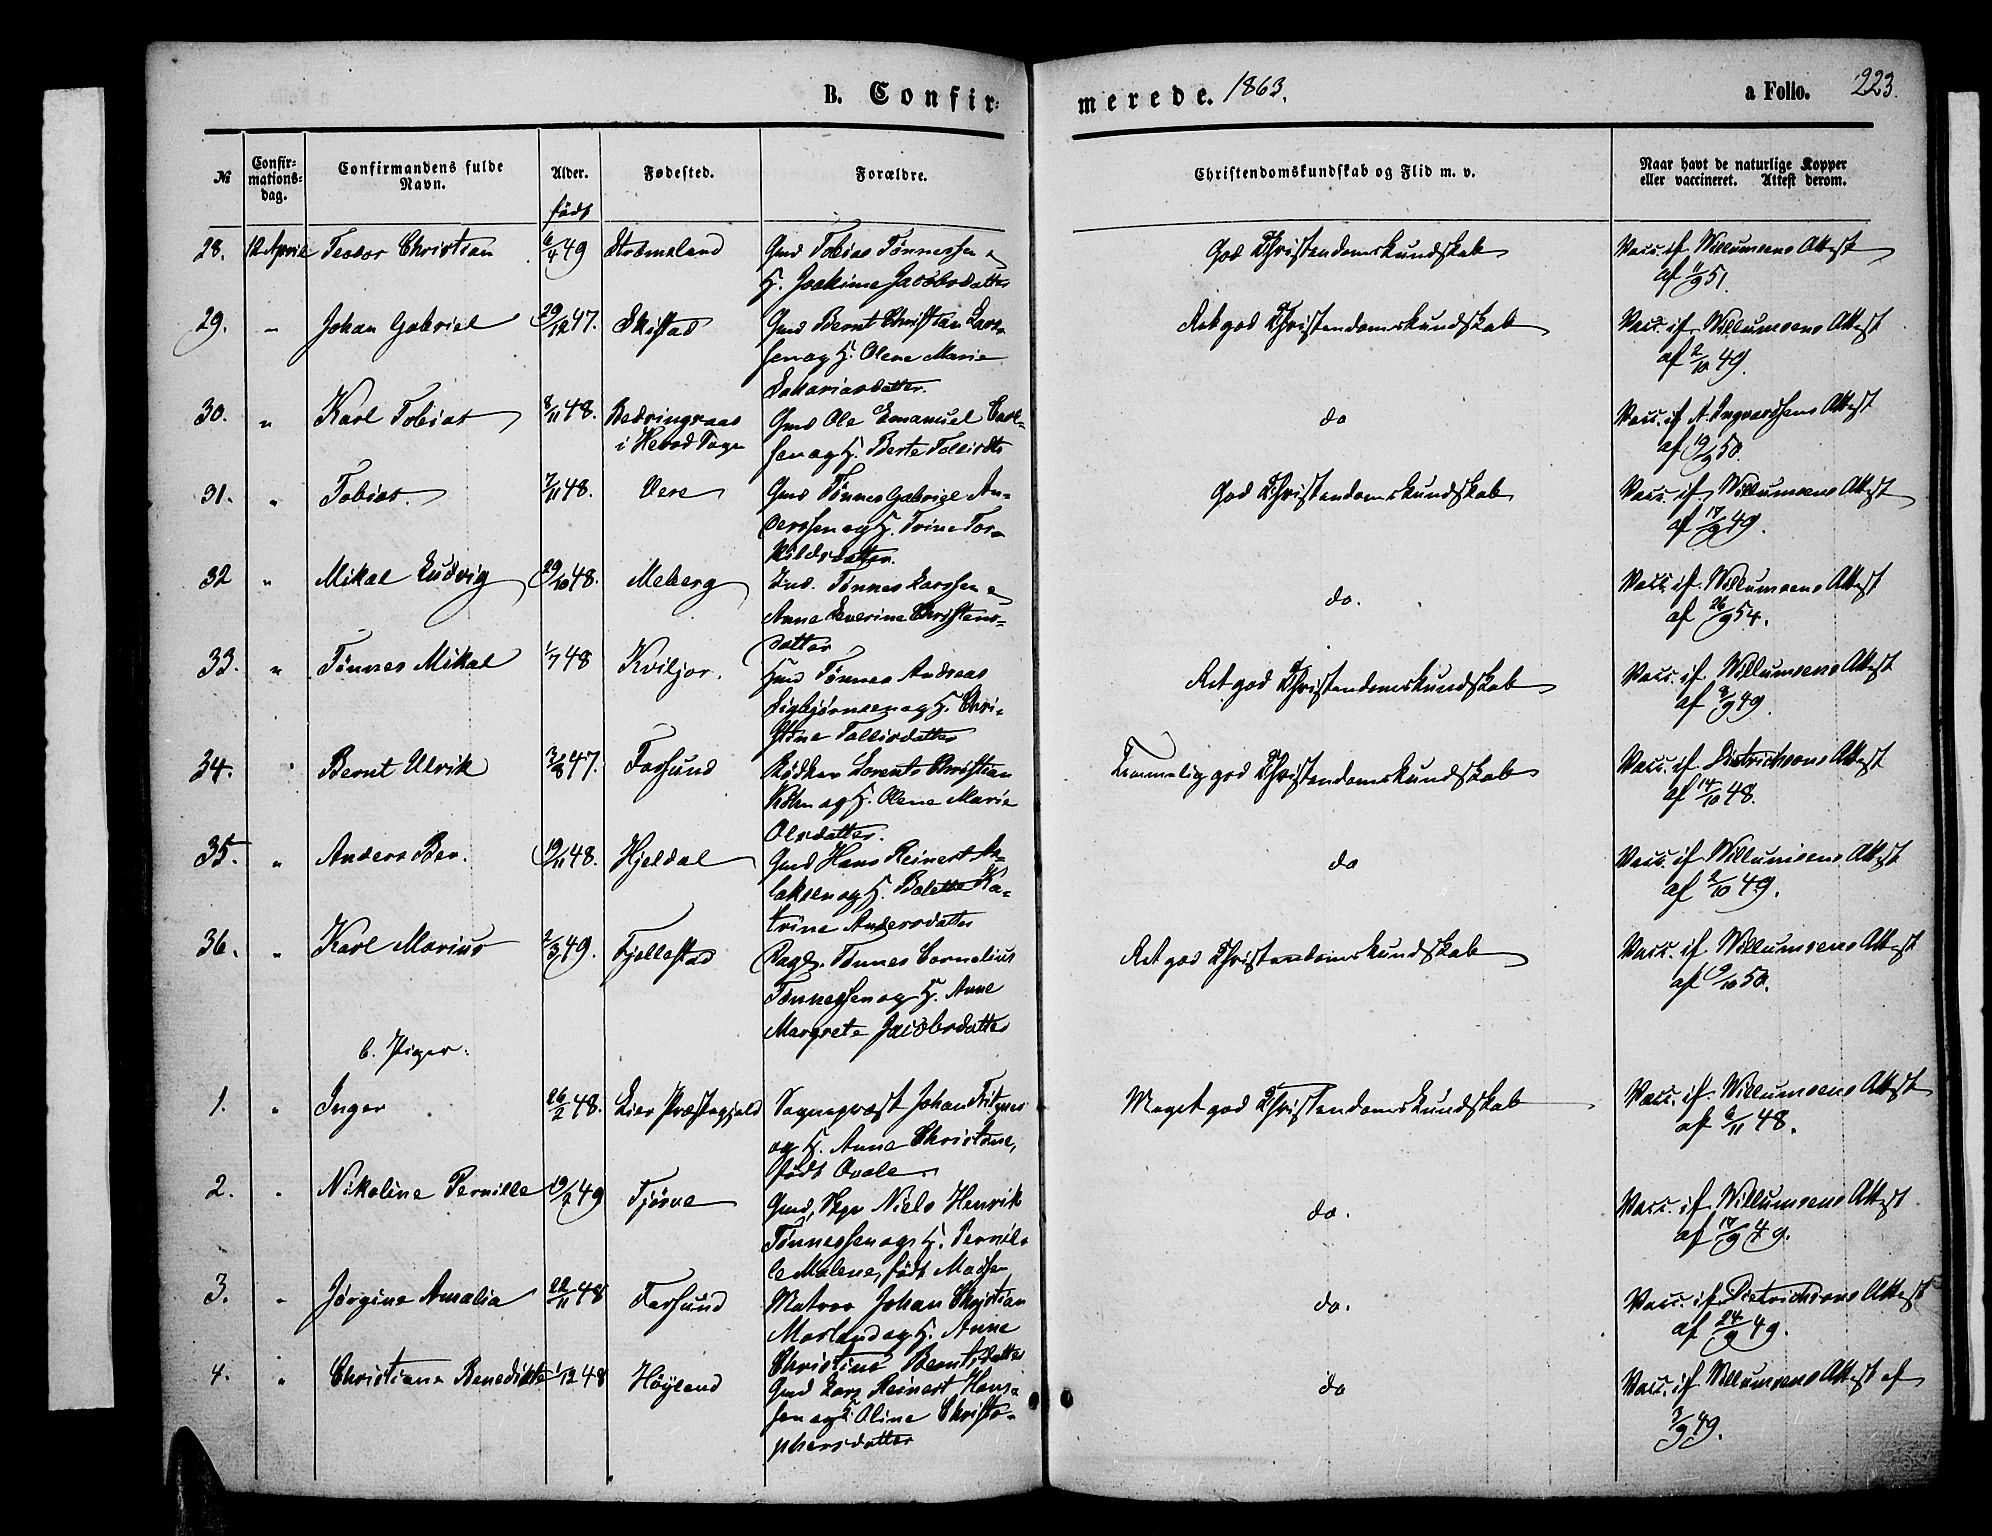 B. Confir-
merede. 1863.
a Folio. 223.
№
Confir-
mations-
dag.
Confirmandens fulde
Navn.
Alder.
født
Fødested.
Forældre.
Christendomskundskab og Flid m. v.
Naar havt de naturlige Kopper
eller vaccineret. Attest derom.
28. 12 April Teodor Christian 6/4 49 Strømsland Gmd Tobias Tønnessen o God Christendomskundskab Vacc. if. Willumsens Attest
H. Joakime Jacobsdatter af 51.
29. " Johan Gabriel 29/12 47. Skistad Gmd Bernt Christian Lars- Ret god Christendomskundskab Vacc. if. Willumsens Attest
sen og H. Olene Marie af 2/10 49.
Sakariasdatter.
30. " Karl Tobias 8/11 48. Gmd Ole Emanuel Carl- do Vacc. if. A. Ingvardsens Attest
i Herod Sogn sen og H. Berte Tollisdtr af 19/9 50.
31. " Tobias. 7/11 48. Vere Gmd Tønnes Gabriel An- God Christendomskundskab Vacc. if. Willumsens Attest
derssen og H. Trine Tor- af 17/9 49.
kildsdatter.
32 " Mikal Ludvig 29/10 48. Meberg Ind. Tønnes Larssen o do. Vacc. if. Willumsens Attest
Anne Severine Christens- af 26/9 54.
datter
33. " Tønnes Mikal 1/7 48 Kviljor. Gmd Tønnes Andreas Ret god Christendomskundskab Vacc. if. Willumsens Attest
Sigbjørnsen og H. Chri- af 3/9 49.
stine Tollisdatter
34. " Bernt Ulrik 3/8 47. Farsund Bødker Lorents Christian Temmelig god Christendomskundskab Vacc. if. Dietrichsons Attest
og H. Olene Marie af 14/10 48.
Olsdatter.
35. " Anders Ber. 19/11 48. Hjeldal Gmd Hans Reinert As- do Vacc. if. Willumsens Attest
laksen og H. Bolette Ka- af 2/10 49.
trine Andersdatter
36. " Karl Marius 2/3 49. Fjellestad Tønnes Cornelius Ret god Christendomskundskab Vacc. if. Willumsens Attest
Tønnessen og H. Anne af 9/10 50.
Margrete Jacobsdatter
b. Piger.
1. " Inger 26/2 48. Lier Præstegjeld Sognepræst Johan Fritzner Meget god Christendomskundskab Vacc. if. Willumsens Attest
og H. Anne Christine, af 6/11 48.
født Ovale
2. " Nikoline Pernille 19/2 49 Tjørve Gmd, Skpr Niels Henrik do. Vacc. if. Willumsens Attest
Tønnessen og H. Pernil- af 17/9 49.
le Malene, født Madsen
3. " Jørgine Amalia 22/11 48 Farsund Matros Johan Christian do. Vacc. if. Dietrichsons Attest
og H. Anne af 24/9 49.
Christine Berntsdatter
4. " Christiane Benedikte 1/12 48 Høyland Gmd Lars Reinert Han- do Vacc. if. Willumsens Attest af
sen og H. Oline Christo- 3/9 49.
phersdatter